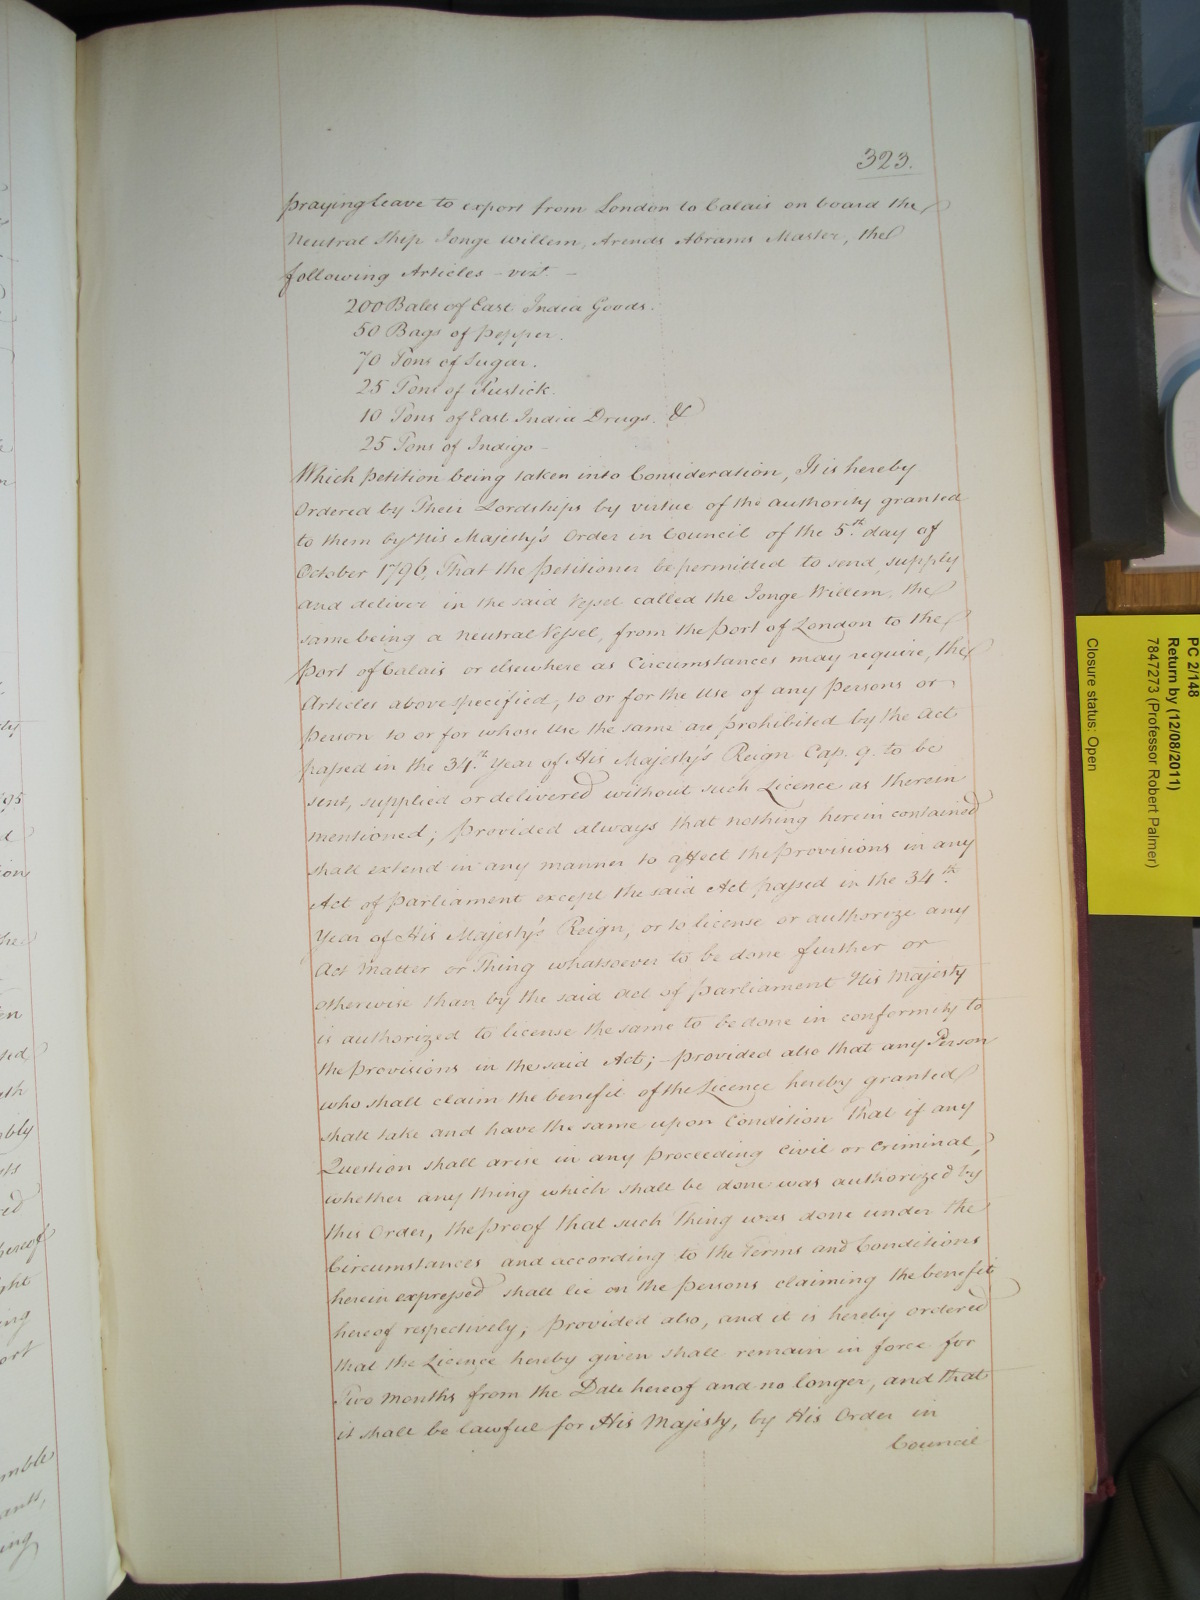 323.
praying leave to export from London to Calais on board the
Neutral Ship Jonge Willem, Arends Abrams Master, the
following Articles - vizt. -
200 Bales of East India Goods.
50 Bags of Pepper.
70 Tons of Sugar.
25 Tons of Fustick.
10 Tons of East India Drugs. &
25 Tons of Indigo -
Which Petition being taken into Consideration, It is hereby
Ordered by Their Lordships by virtue of the authority granted
to them by His Majesty's Order in Council of the 5th. day of
October 1796, That the Petitioner be permitted to send, supply
and deliver in the said Vessel called the Jonge Willem, the
same being a Neutral Vessel, from the Port of London to the
Port of Calais or elsewhere as Circumstances may require, the
Articles above specified, to or for the Use of any Persons or
Person to or for whose Use the same are prohibited by the Act
passed in the 34th. Year of His Majesty's Reign Cap. 9. to be
sent, supplied or delivered without such Licence as therein
mentioned; Provided always that nothing herein contained
shall extend in any manner to affect the Provisions in any
Act of Parliament except the said Act passed in the 34th.
Year of His Majesty's Reign, or to license or authorize any
Act Matter or Thing whatsoever to be done further or
otherwise than by the said Act of Parliament His Majesty
is authorized to license the same to be done in conformity to
the Provisions in the said Act; - Provided also that any Person
who shall claim the benefit of the Licence hereby granted
shall take and have the same upon Condition that if any
Question shall arise in any Proceeding Civil or Criminal,
whether any thing which shall be done was authorized by
this Order, the proof that such thing was done under the
Circumstances and according to the Terms and Conditions
herein expressed shall lie on the Persons claiming the benefit
hereof respectively; Provided also, and it is hereby ordered
that the Licence hereby given shall remain in force for
Two Months from the Date hereof and no longer, and that
it shall be lawful for His Majesty, by His Order in
Council
PC 2/148
Return by (12/08/2011)
7847273 (Professor Robert Palmer)
Closure status: Open